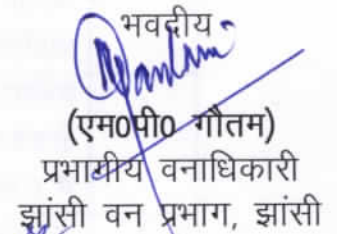 भवदीय
(एम0पी0 गौतम)
प्रभागीय वनाधिकारी
झांसी वन प्रभाग, झांसी